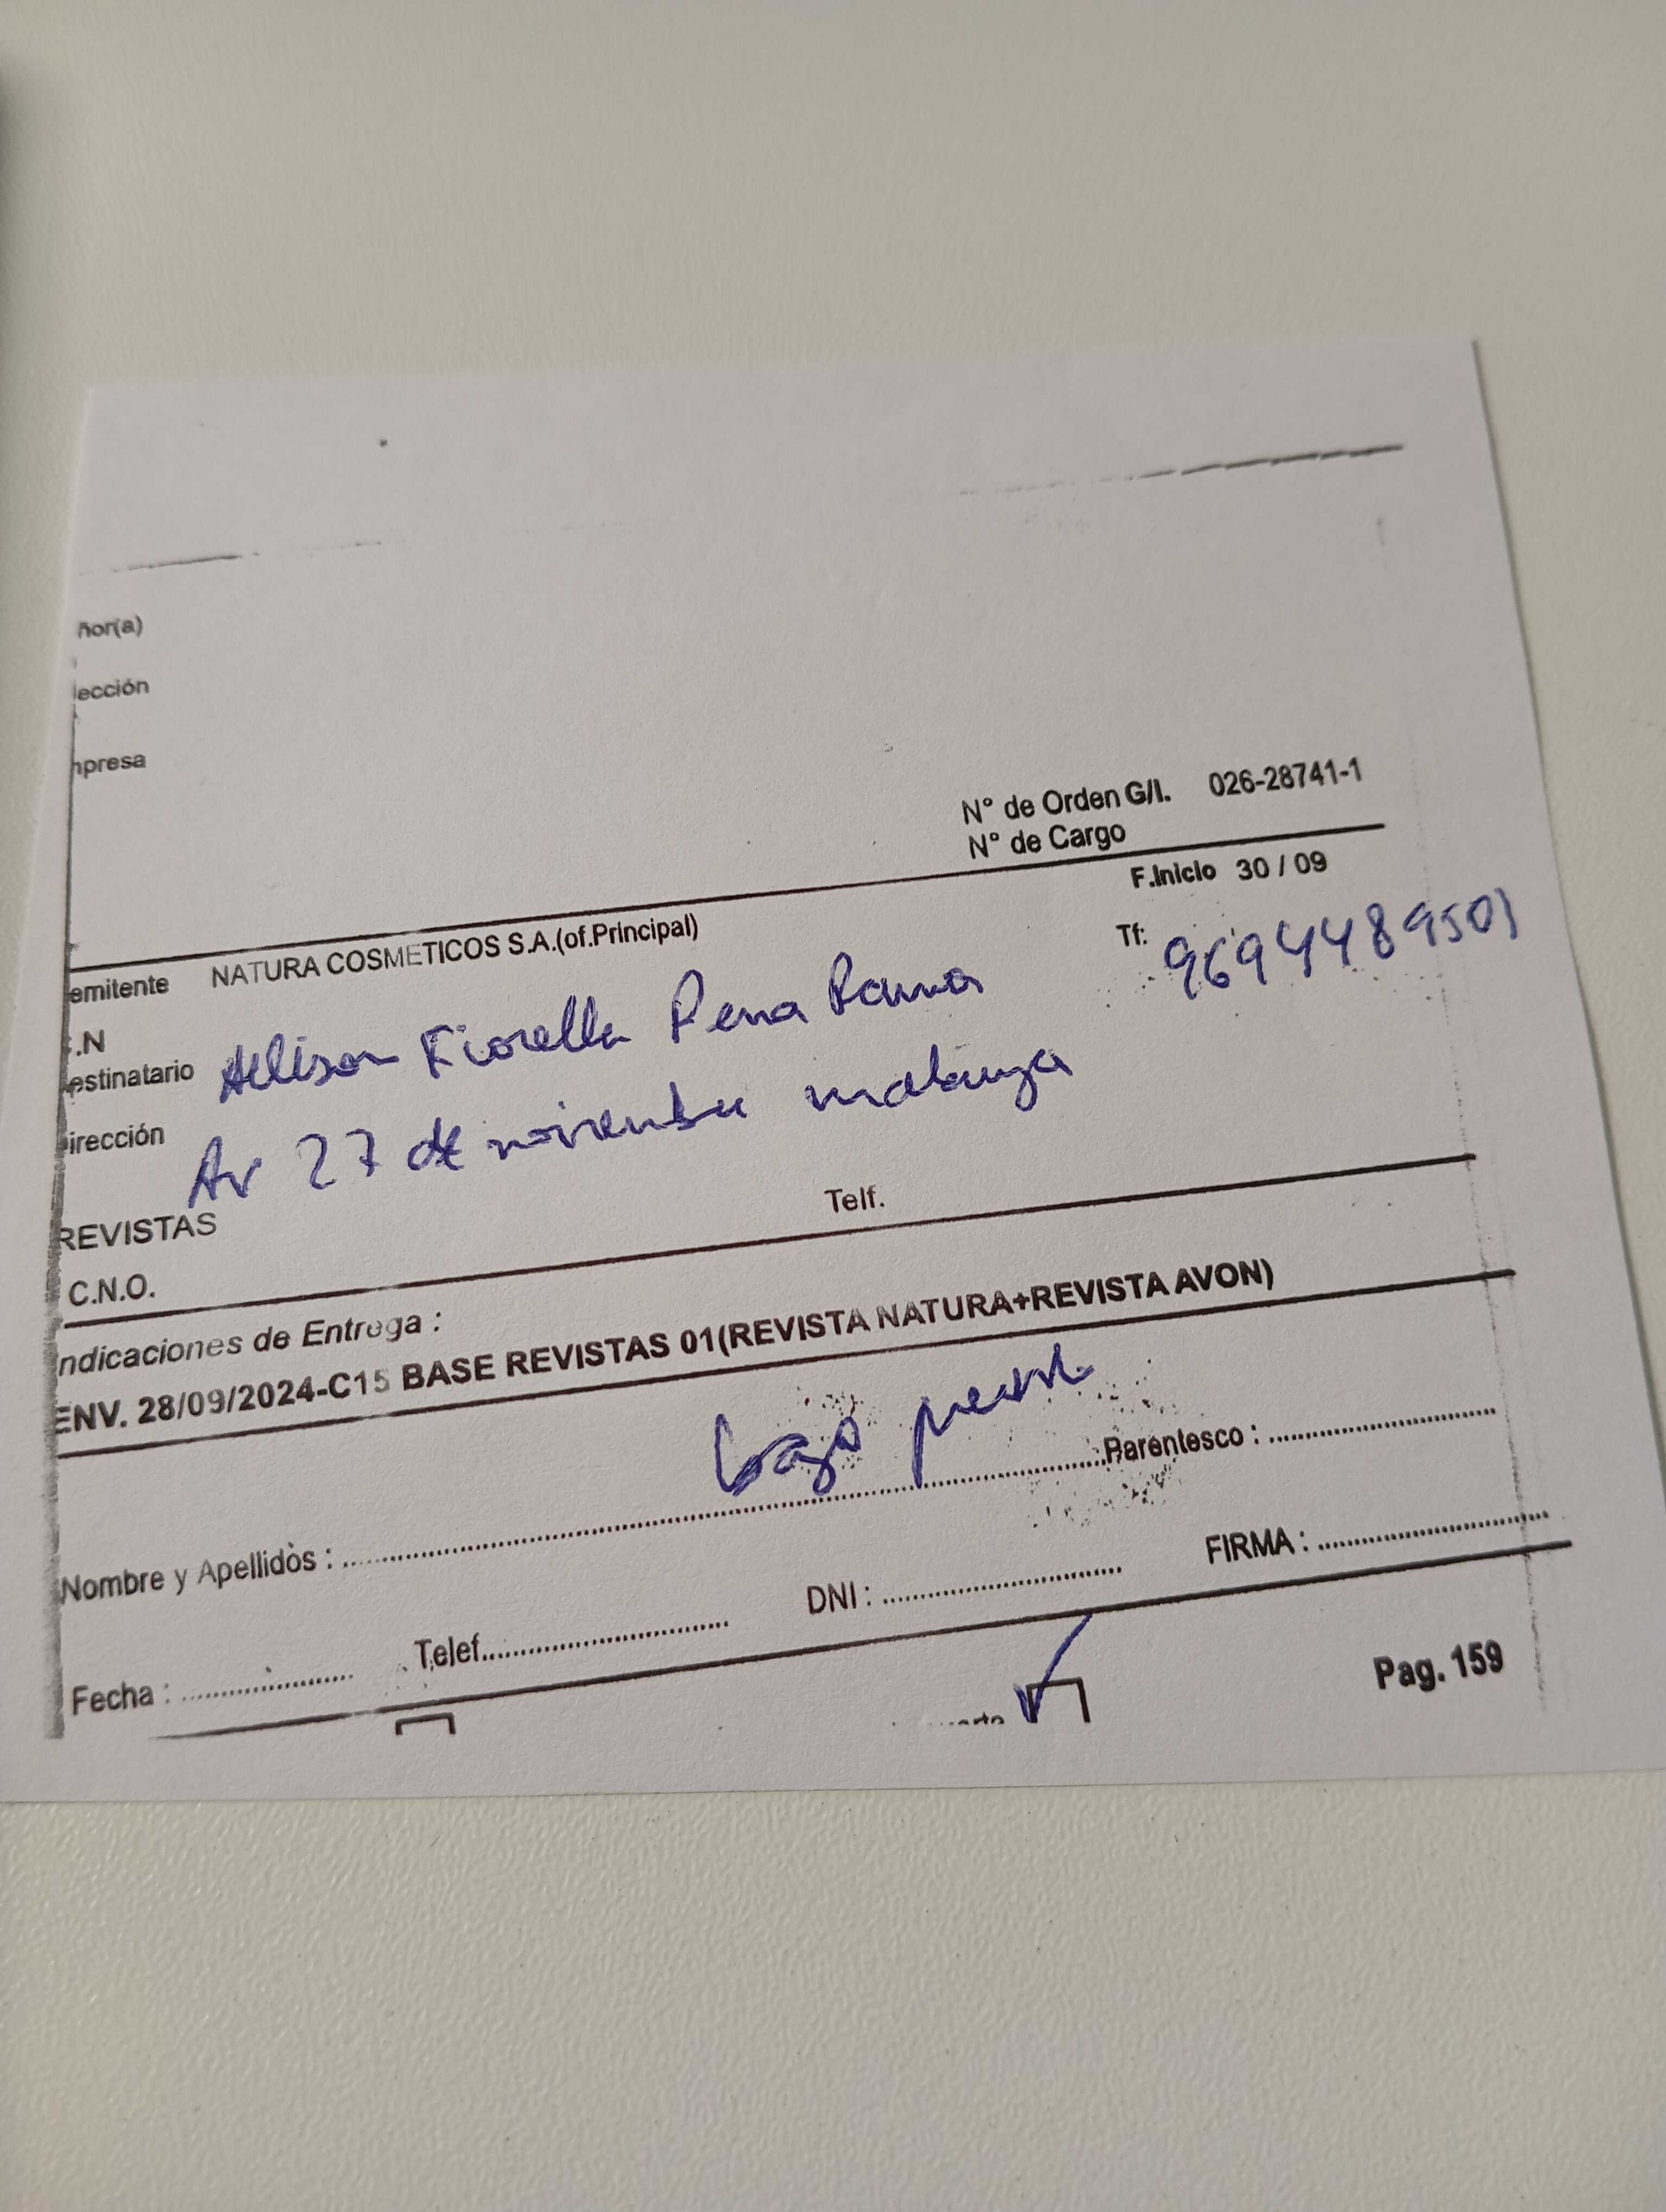 ñor(a)
lección
npresa
N° de Orden G/I. 026-28741-1
N° de Cargo
F.Inicio 30 / 09
emitente NATURA COSMETICOS S.A.(of.Principal)
Tf: 9694489501
.N
estinatario Allison Fiorella Pena Rama
irección Av 27 de noviembre matanza
REVISTAS
Telf.
C.N.O.
Indicaciones de Entrega :
ENV. 28/09/2024-C15 BASE REVISTAS 01(REVISTA NATURA+REVISTA AVON)
bajo
Nombre y Apellidos : Parentesco :
Fecha : Telef. DNI : FIRMA :
Pag. 159